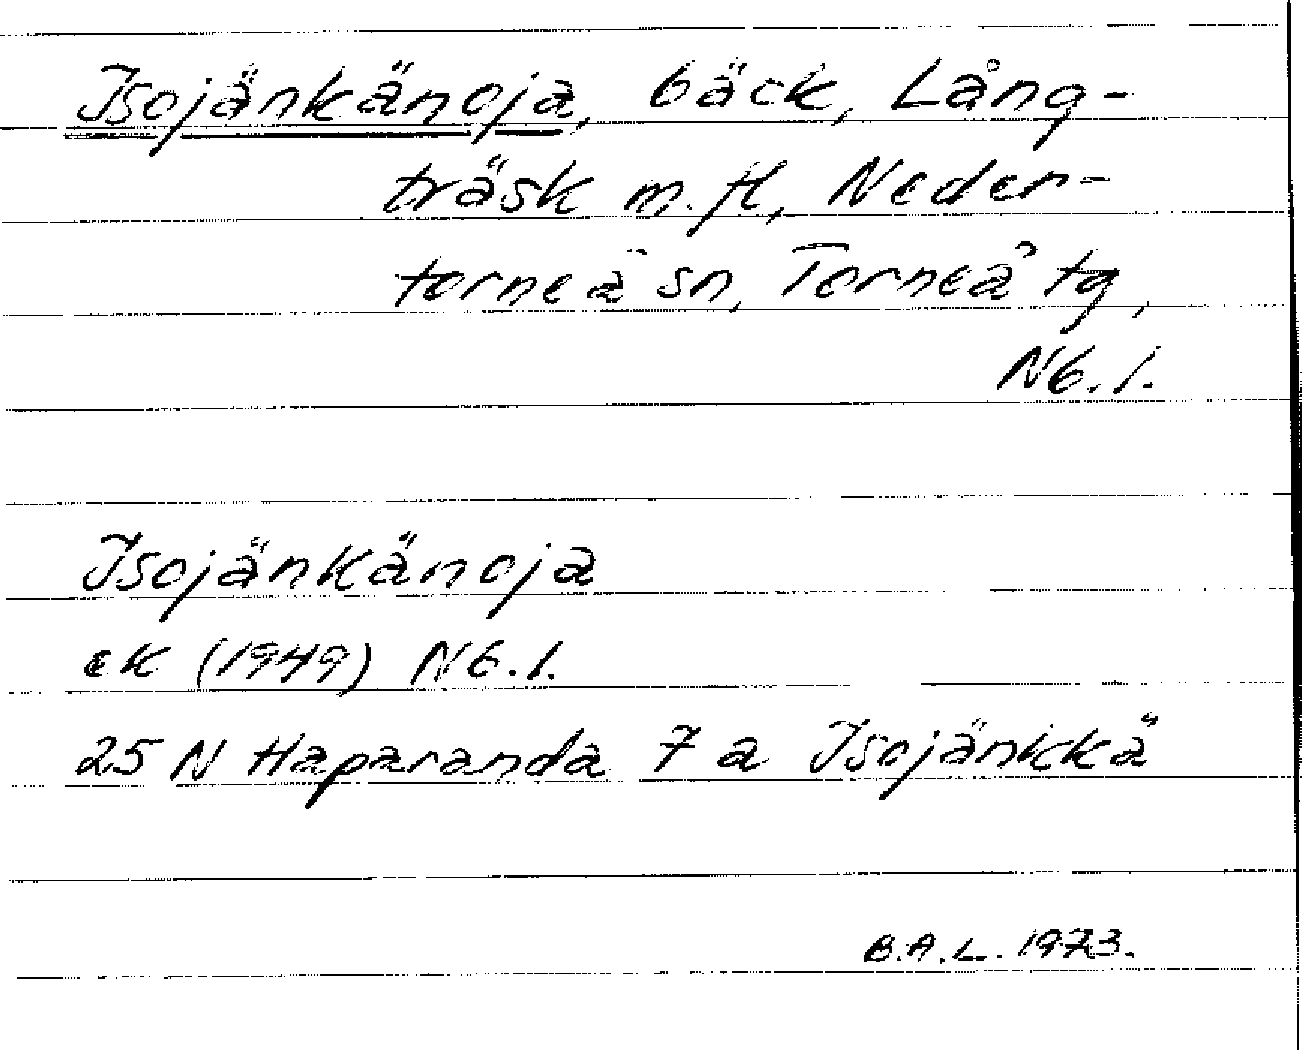 Isojänkänoja, bäck, Lång-
träsk m. fl, Neder-
torneå sn, Torneå tg,
Nb. l.
Isojänkänoja
ek (1949) Nb. l.
25 N Haparanda 7 a Isojänkkä
B.A.L. 1973.